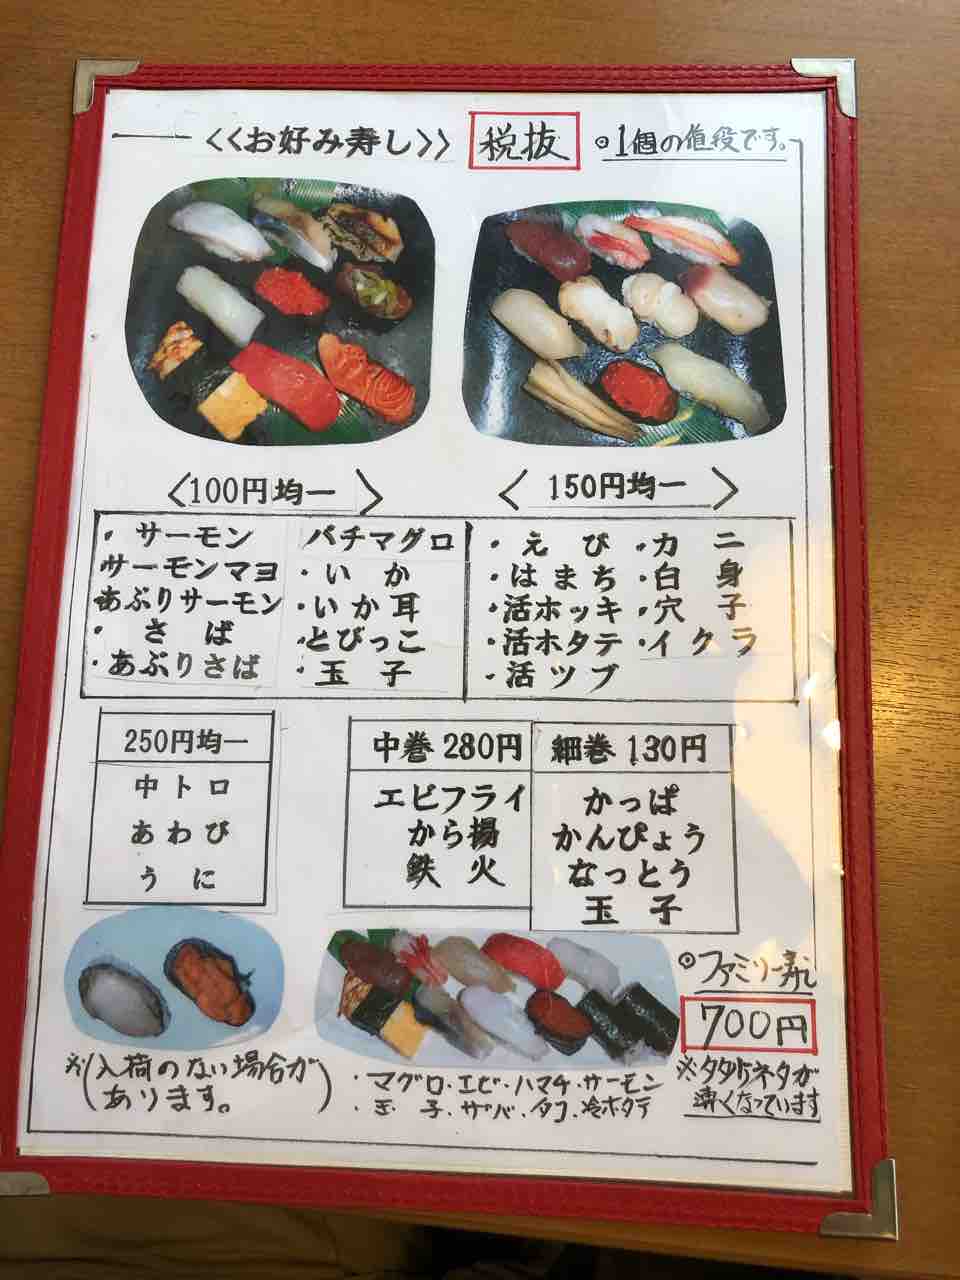 <<お好み寿し>> 税抜 ◎1個の値段です。
<100円均一>
・サーモン
サーモンマヨ
あぶりサーモン
・さば
・あぶりさば
バチマグロ
・いか
・いか耳
・とびっこ
・玉子
<150円均一>
・えび
・はまち
・活ホッキ
・活ホタテ
・活ツブ
・カニ
・白身
・穴子
・イクラ
250円均一
中トロ
あわび
うに
中巻 280円
エビフライ
から揚
鉄火
細巻 130円
かっぱ
かんぴょう
なっとう
玉子
※(入荷のない場合が
あります。)
◎ファミリー寿し
700円
・マグロ・エビ・ハマチ・サーモン
・玉子・サバ・タコ・冷ホタテ
※多少ネタが
薄くなっています